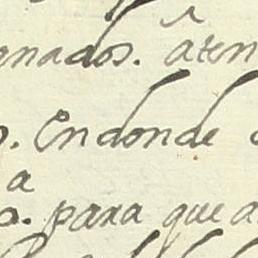 nados. âten
o. En donde
a
o. para que a